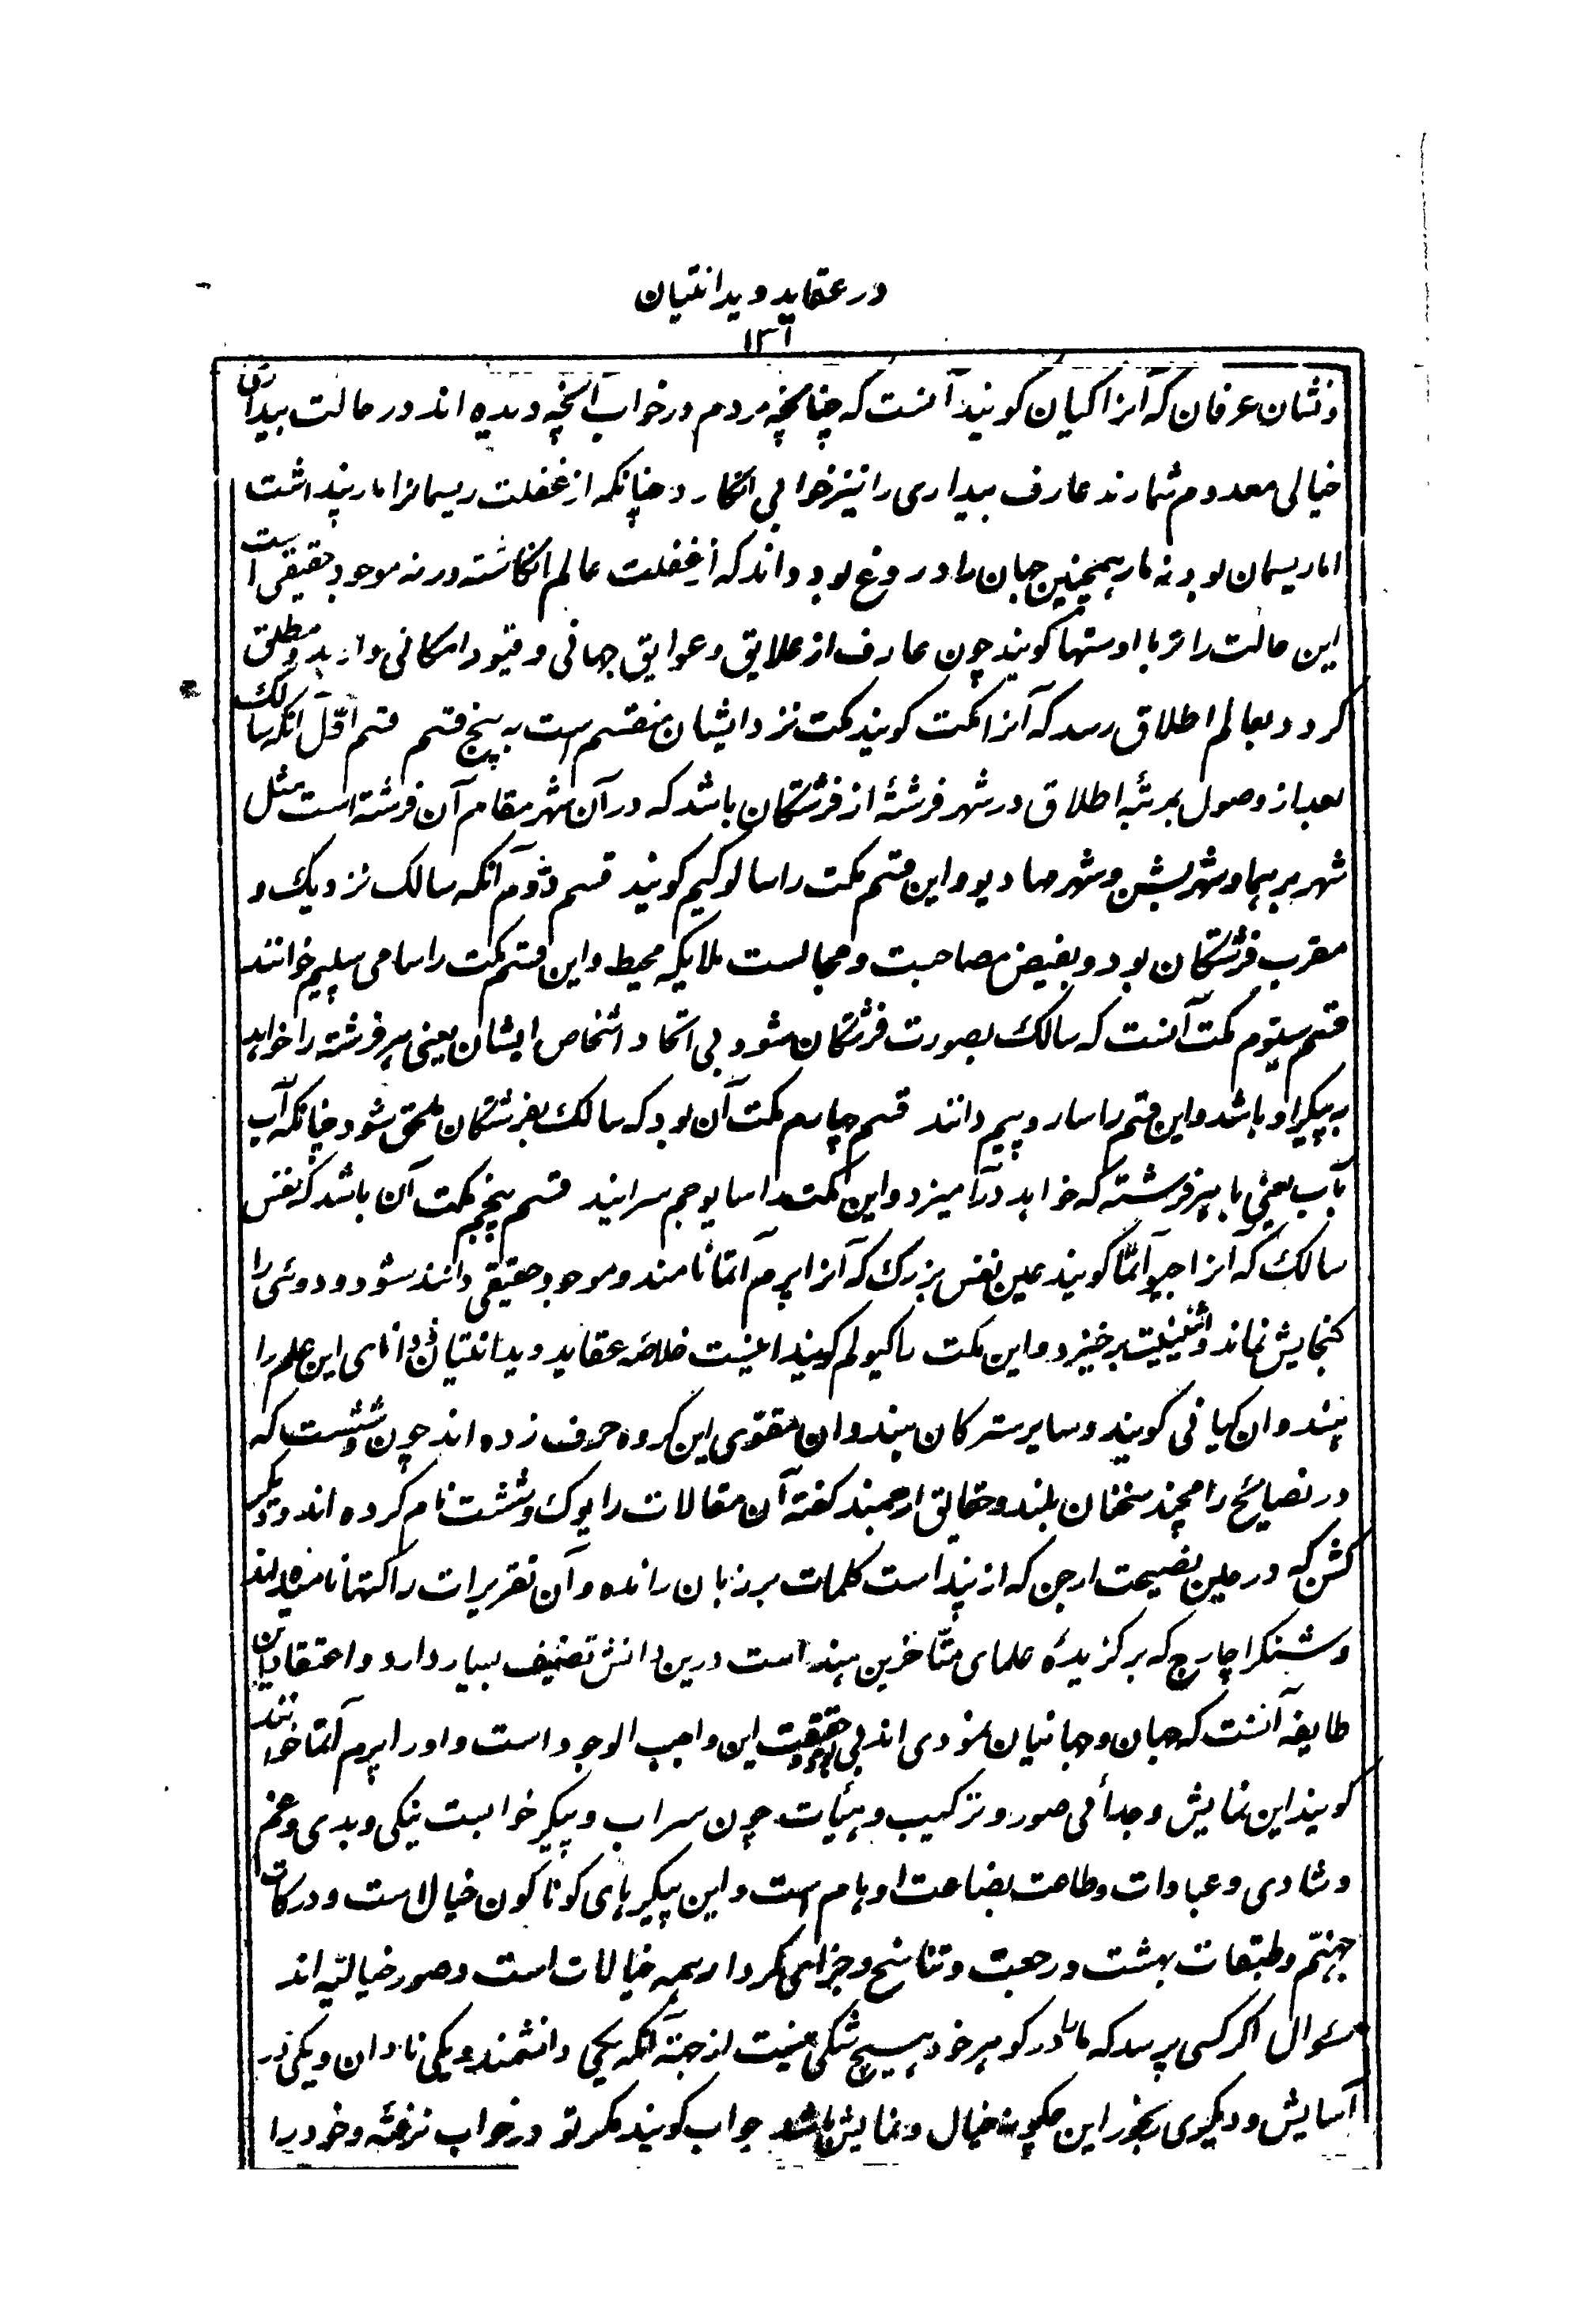 در عقاید ویدانتیان
۱۳۱
ونشان عرفان که آنرا کیان کویند آنست که چنانچه مردم در خواب آنچه دیده اند در حالت بیداری
خیالی معدوم شمارند عارف بیداری را نیز خوابی انکارد چنانکه از غفلت ریسمانرا مار پنداشت
اما ریسمان بود نه مار همچنین جهان را دروغ بود داند که از غفلت عالم انکاشته ورنه موجود حقیقی است
این حالت را تربا اوستها کویند چون عارف از علایق و عوایق جهانی و قیود امکانی وارید و مطلق
کردد بعالم اطلاق رسد که آنرا مکت کویند مکت نزد ایشان منقسم است به پنج قسم قسم اوّل انکه سالک
بعد از وصول بمرتبه اطلاق در شهر فرشتهٔ از فرشتکان باشد که در آن شهر مقام آن فرشته است مثل
شهر برهما و شهر بشن و شهر مهادیو و این قسم مکت را سالوکیم کویند قسم دوّم آنکه سالک نزدیک و
مقرب فرشتکان بود و بفیض مصاحبت و مجالست ملایکه محیط و این قسم مکت را سامی سپیم خوانند
قسم سیّوم مکت آنست که سالک بصورت فرشتکان شود بی اتحاد اشخاص ایشان یعنی هر فرشته را خواهد
به پیکر او باشد و این قسم را ساروپیم دانند قسم چهارم مکت آن بود که سالک بفرشتکان ملحق شود چنانکه آب
بآب یعنی با هر فرشته که خواهد درآمیزد و این مکت را سایوجم سرایند قسم پنجم مکت آن باشد که نفس
سالک که آنرا جیو آتما کویند عین نفس بزرک که آنرا پرم آتما نامند و موجود حقیقی دانند شود و دوئی را
کنجایش نماند و اثنینیت برخیزد و این مکت را کیولم کویند اینست خلاصه عقاید ویدانتیان و دانای این علم را
هندوان کیانی کویند و سایر سترکان هندوان مقوّی این کروه حرف زده اند چون وششت که
در نصایح رامچند سخنان بلند و حقایق ارجمند کفته آن مقالات را یوک وششت نام کرده اند و دیکر
کشن که در عین نصیحت ارجن که از پندا است کلمات بر زبان رانده و آن تقریرات را کتها نامیده اند
و شنکراچارج که برکزیدهٔ علمای متأخرین هند است درین دانش تصنیف بسیار دارد و اعتقاد این
طایفه آنست که جهان و جهانیان نمودی اند بی حقیقت این واجب الوجود است و اورا پرم آتما خوانند
کویند این نمایش و جدائی صور و ترکیب و هیئات چون سراب و پیکر خوابست نیکی و بدی و غم
و شادی و عبادات و طاعت بضاعت اوهام است و این پیکر های کوناکون خیالاست و درکات
جهنّم و طبقات بهشت و رجعت و تناسخ و جزای کردار همه خیالات است و صور خیالیّه اند
سؤال اکر کسی پرسد که ما را در کوهر خود هیسچ شکی نیست از جهة آنکه یکی دانشمند و یکی نادان و یکی در
آسایش و دیکری رنجور این چکونه خیال و نمایش باشد جواب کویند مکر تو در خواب نرفتهٔ و خود را